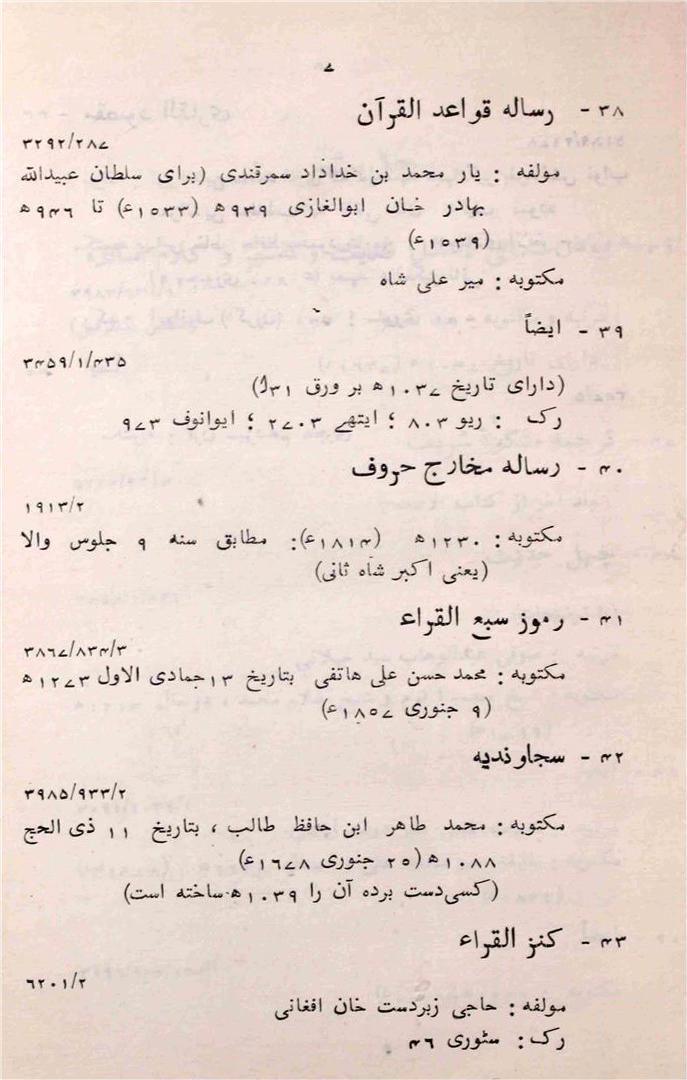 ۷
۳۸ - رساله قواعد القرآن
۳۲۹۲/۲۸۷
مولفه : یار محمد بن خداداد سمرقندی (برای سلطان عبیدالله
بهادر خان ابوالغازی ۹۳۹ھ (۱۵۳۳ء) تا ۹۴۶ھ
(۱۵۳۹ء)
مکتوبه : میر علی شاه
۳۹ - ایضاً
۳۴۵۹/۱/۴۳۵
(دارای تاریخ ۱۰۳۷ھ بر ورق ۳۱
رک : ریو ۸۰۳ ؛ ایتھے ۲۷۰۳ ؛ ایوانوف ۹۷۳
۴۰ - رساله مخارج حروف
۱۹۱۳/۲
مکتوبه : ۱۲۳۰ھ (۱۸۱۴ء): مطابق سنه ۹ جلوس والا
(یعنی اکبر شاه ثانی)
۴۱ - رموز سبع القراء
۳۸۶۷/۸۳۴/۳
مکتوبه : محمد حسن علی هاتفی بتاریخ ۱۳ جمادی الاول ۱۲۷۳ھ
(۹ جنوری ۱۸۵۷ء)
۴۲ - سجاوندیه
۳۹۸۵/۹۳۳/۲
مکتوبه : محمد طاهر ابن حافظ طالب ، بتاریخ ۱۱ ذی الحج
۱۰۸۸ھ (۲۵ جنوری ۱۶۷۸ء)
(کسی دست برده آن را ۱۰۳۹ھ ساخته است)
۴۳ - کنز القراء
۶۲۰۱/۲
مولفه : حاجی زبردست خان افغانی
رک : سٹوری ۴۶